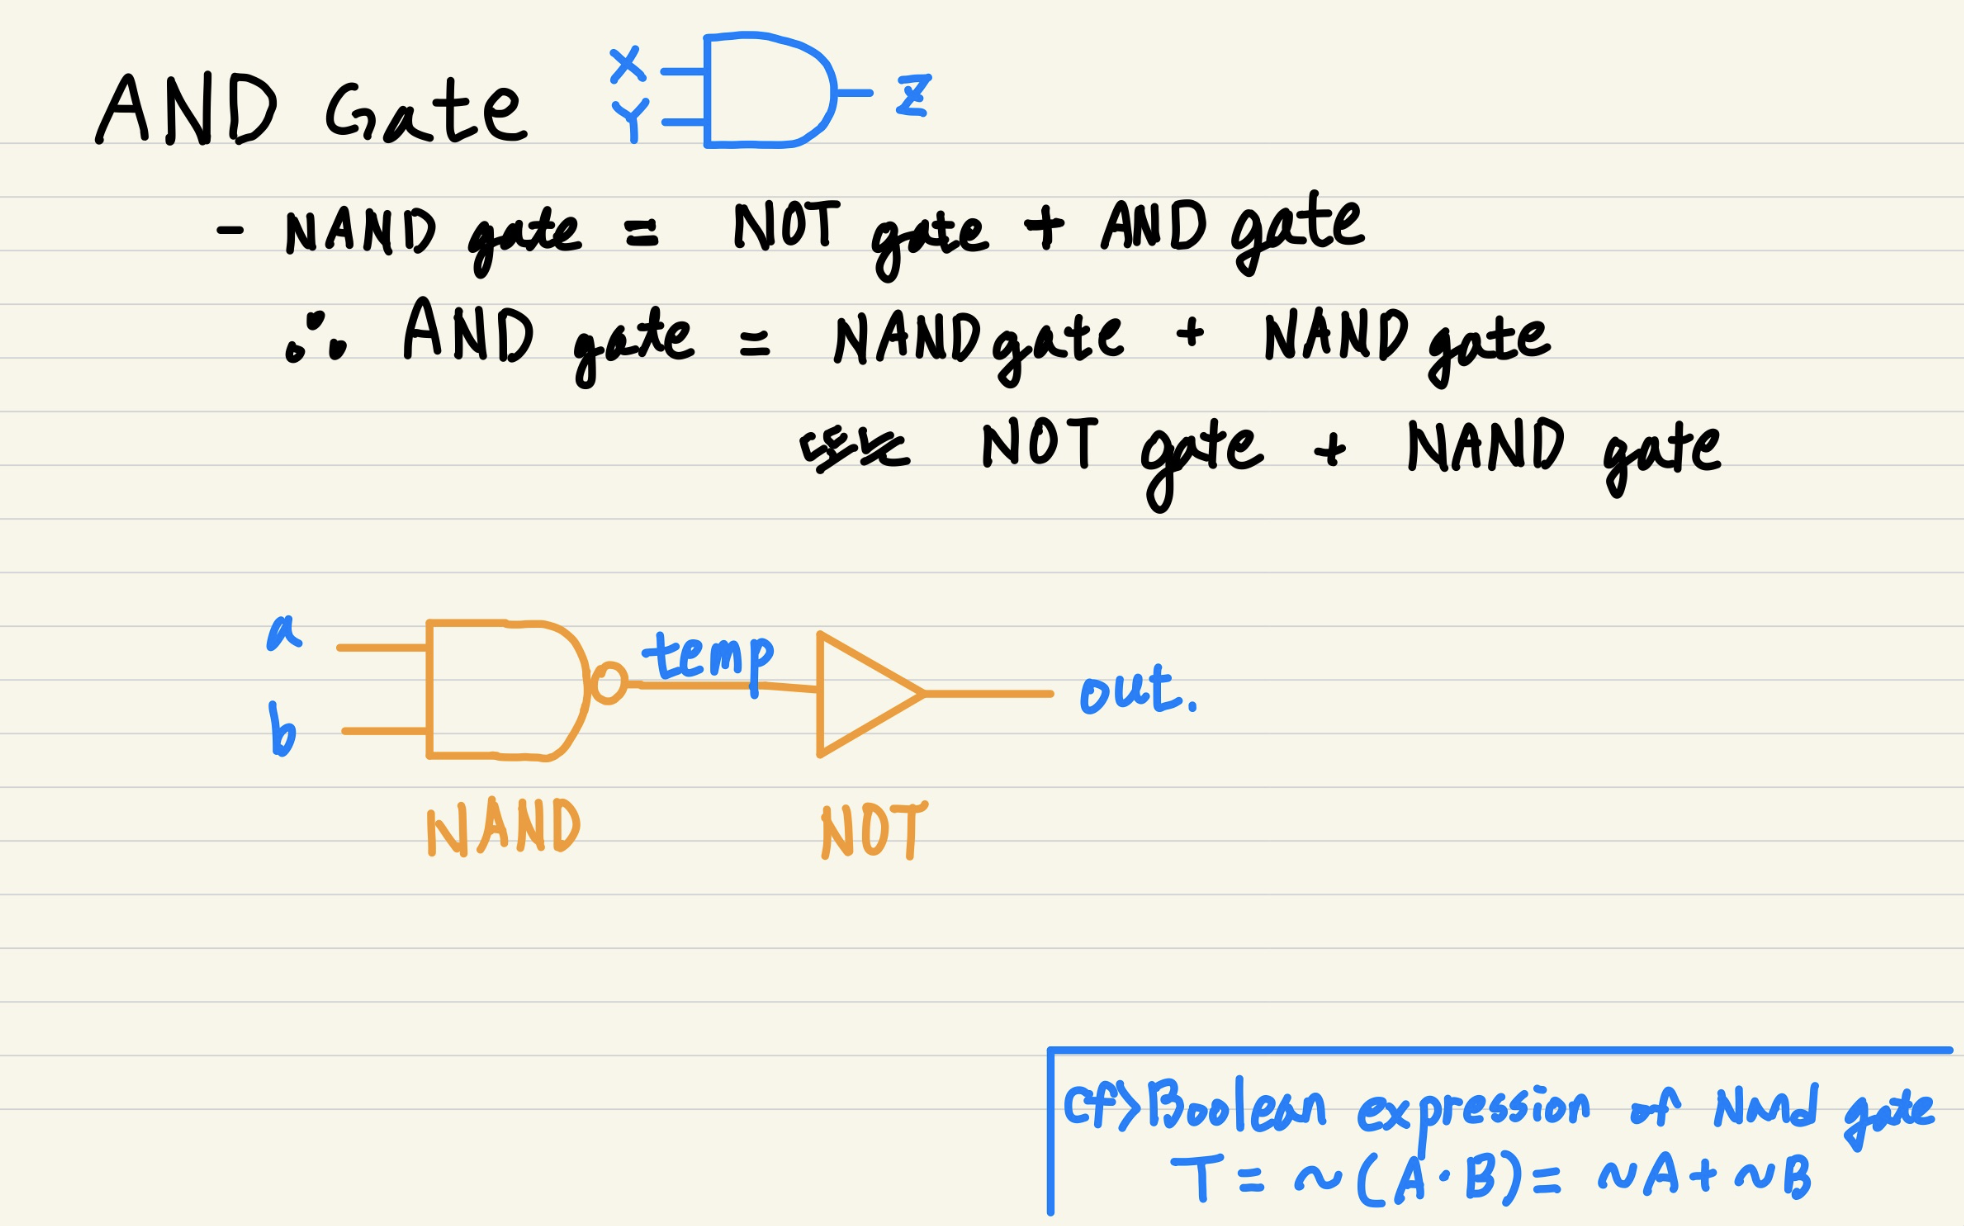 AND Gate X Y Z
- NAND gate = NOT gate + AND gate
∴ AND gate = NAND gate + NAND gate
NOT gate + NAND gate
a
temp
out.
b
NAND NOT
cf> Boolean expression of Nand gate
T = ~(A·B) = ~A + ~B